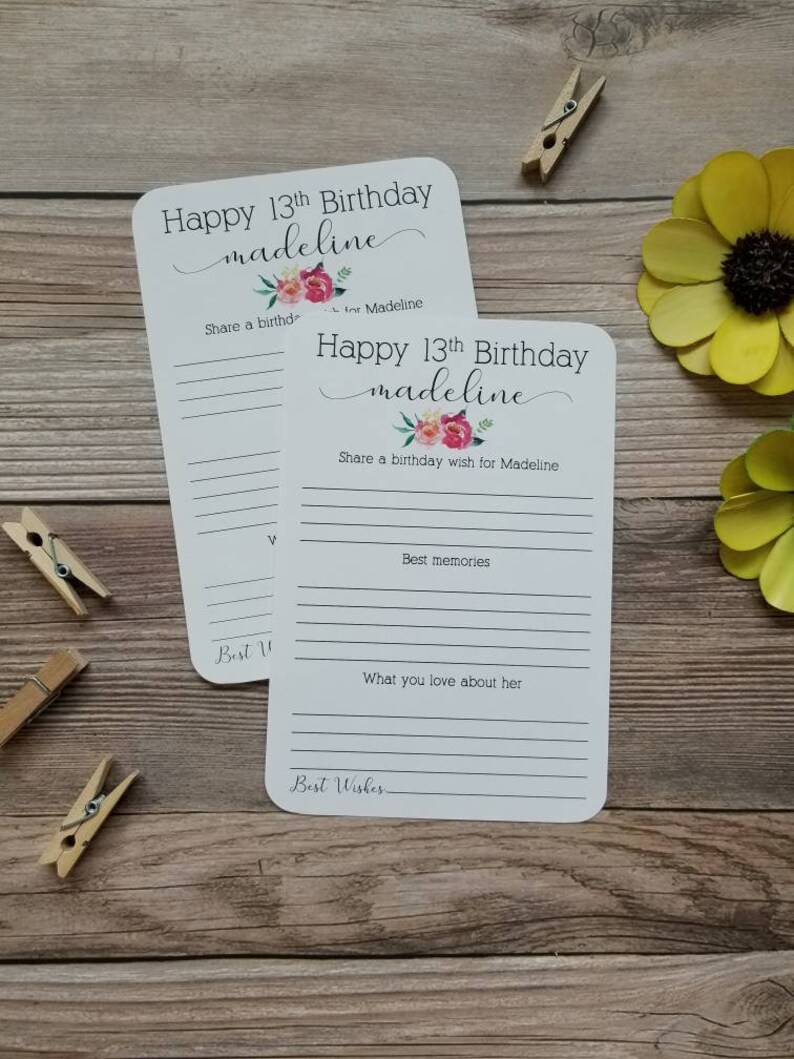 Happy 13th Birthday
madeline
Share a birthday wish for Madeline
Best W
Happy 13th Birthday
madeline
Share a birthday wish for Madeline
Best memories
What you love about her
Best Wishes